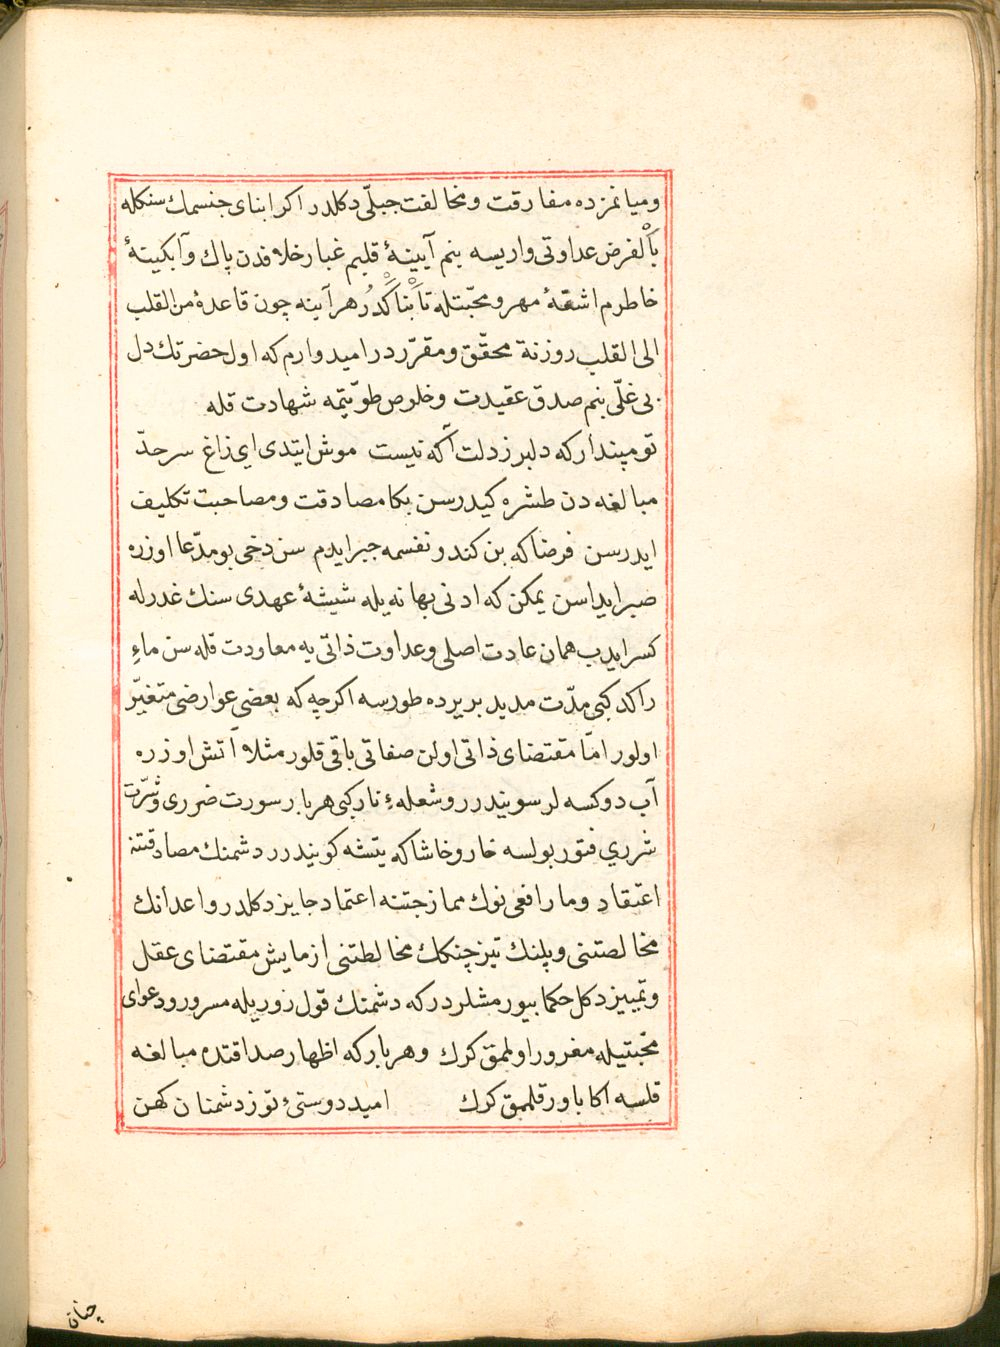 وميانمزده مفارقت ومخالفت جبلّى دكلدر اكر ابناى جنسمك سنكله
بالفرض عداوتى واريسه بنم آيينۀ قلبم غبار خلافدن پاك وآبكينۀ
خاطرم اشعّۀ مهر ومحبّتله تابناكدر هرآينه چون قاعدۀ من القلب
الى القلب روزنة محقّق ومقرّردر اميدوارم كه اول حضرتك دل
بى غلّى بنم صدق عقيدت وخلوص طويّتمه شهادت قله
تو مپندار كه دلبر ز دلت آكه نيست موش ايتدى اى زاغ سرحدّ
مبالغه دن طشره كيدرسن بكا مصادقت ومصاحبت تكليف
ايدرسن فرضا كه بن كندو نفسمه جبر ايدم سن دخى بو مدّعا اوزره
صبر ايداسن يمكن كه ادنى بهانه يله شيشۀ عهدى سنك غدرله
كسر ايدب همان عادت اصلى وعداوت ذاتى يه معاودت قله سن ماءِ
راكد كبى مدّت مديد بر يرده طورسه اكرچه كه بعضى عوارضى متغيّر
اولور امّا مقتضاى ذاتى اولن صفاتى باقى قلور مثلا آتش اوزره
آب دوكسه لر سويندرر وشعلهٔ نار كبى هر بار سورت ضررى وشرّت
شررى فتور بولسه خار وخاشاكه يتشه كويندرر دشمنك مصادقتنه
اعتقاد ومار افعى نوك ممازجتنه اعتماد جايز دكلدر واعدانك
مخالصتنى وپلنك تيز چنكك مخالطتنى ازمايش مقتضاى عقل
وتمييز دكل حكما بيورمشلردر كه دشمنك قول زوريله مسرور ودعواى
محبّتيله مغرور اولمق كرك وهر بار كه اظهار صداقتده مبالغه
قلسه اكا باور قلمق كرك اميد دوستىٔ تو ز دشمنان كهن
چنان